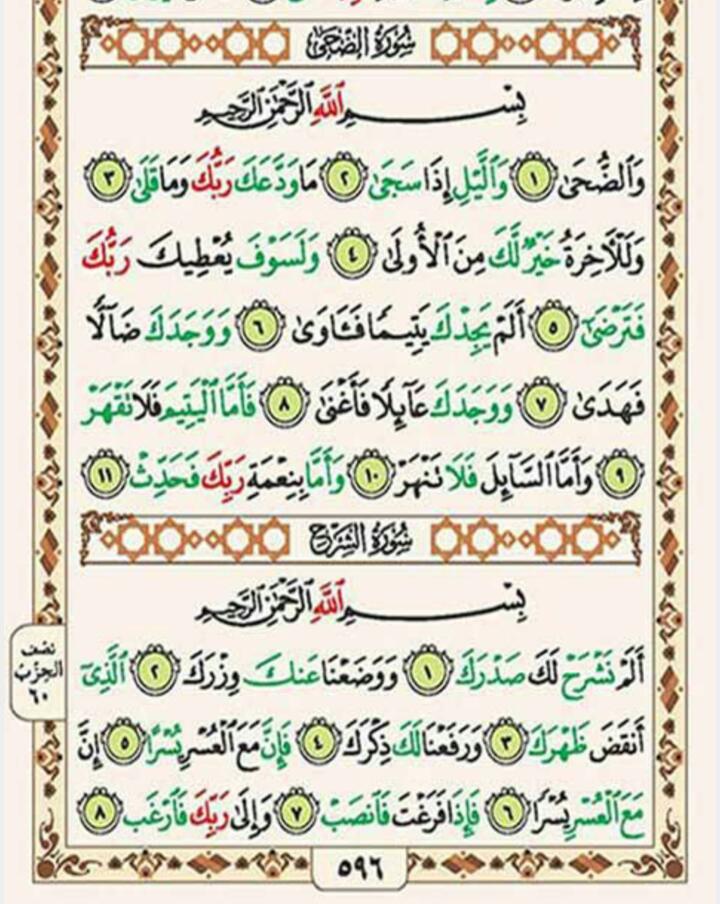 سُورَةُ الضُّحَىٰ
بِسْمِ ٱللَّهِ ٱلرَّحْمَٰنِ ٱلرَّحِيمِ
وَٱلضُّحَىٰ ١ وَٱلَّيْلِ إِذَا سَجَىٰ ٢ مَا وَدَّعَكَ رَبُّكَ وَمَا قَلَىٰ ٣
وَلَلْآخِرَةُ خَيْرٌ لَّكَ مِنَ ٱلْأُولَىٰ ٤ وَلَسَوْفَ يُعْطِيكَ رَبُّكَ
فَتَرْضَىٰٓ ٥ أَلَمْ يَجِدْكَ يَتِيمًا فَـَٔاوَىٰ ٦ وَوَجَدَكَ ضَآلًّا
فَهَدَىٰ ٧ وَوَجَدَكَ عَآئِلًا فَأَغْنَىٰ ٨ فَأَمَّا ٱلْيَتِيمَ فَلَا تَقْهَرْ
٩ وَأَمَّا ٱلسَّآئِلَ فَلَا تَنْهَرْ ١٠ وَأَمَّا بِنِعْمَةِ رَبِّكَ فَحَدِّثْ ١١
سُورَةُ الشَّرْحِ
بِسْمِ ٱللَّهِ ٱلرَّحْمَٰنِ ٱلرَّحِيمِ
أَلَمْ نَشْرَحْ لَكَ صَدْرَكَ ١ وَوَضَعْنَا عَنكَ وِزْرَكَ ٢ ٱلَّذِىٓ
نصف
الحزب
٦٠
أَنقَضَ ظَهْرَكَ ٣ وَرَفَعْنَا لَكَ ذِكْرَكَ ٤ فَإِنَّ مَعَ ٱلْعُسْرِ يُسْرًا ٥ إِنَّ
مَعَ ٱلْعُسْرِ يُسْرًا ٦ فَإِذَا فَرَغْتَ فَٱنصَبْ ٧ وَإِلَىٰ رَبِّكَ فَٱرْغَب ٨
٥٩٦